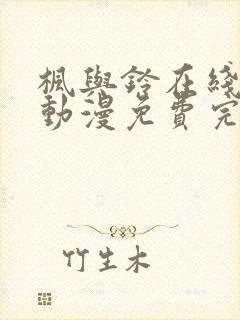 楓與鈴在綫
動漫免費完
竹生木